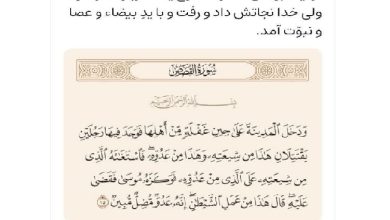 ولی خدا نجاتش داد و رفت و با یدِ بیضاء و عصا
و نبوّت آمد.
سُورَةُ القَصَصِ
بِسْمِ اللَّهِ الرَّحْمَٰنِ الرَّحِيمِ
وَدَخَلَ الْمَدِينَةَ عَلَىٰ حِينِ غَفْلَةٍ مِّنْ أَهْلِهَا فَوَجَدَ فِيهَا رَجُلَيْنِ
يَقْتَتِلَانِ هَٰذَا مِن شِيعَتِهِ وَهَٰذَا مِنْ عَدُوِّهِ ۖ فَاسْتَغَاثَهُ الَّذِي
مِن شِيعَتِهِ عَلَى الَّذِي مِنْ عَدُوِّهِ فَوَكَزَهُ مُوسَىٰ فَقَضَىٰ
عَلَيْهِ ۖ قَالَ هَٰذَا مِنْ عَمَلِ الشَّيْطَانِ ۖ إِنَّهُ عَدُوٌّ مُّضِلٌّ مُّبِينٌ ١٥